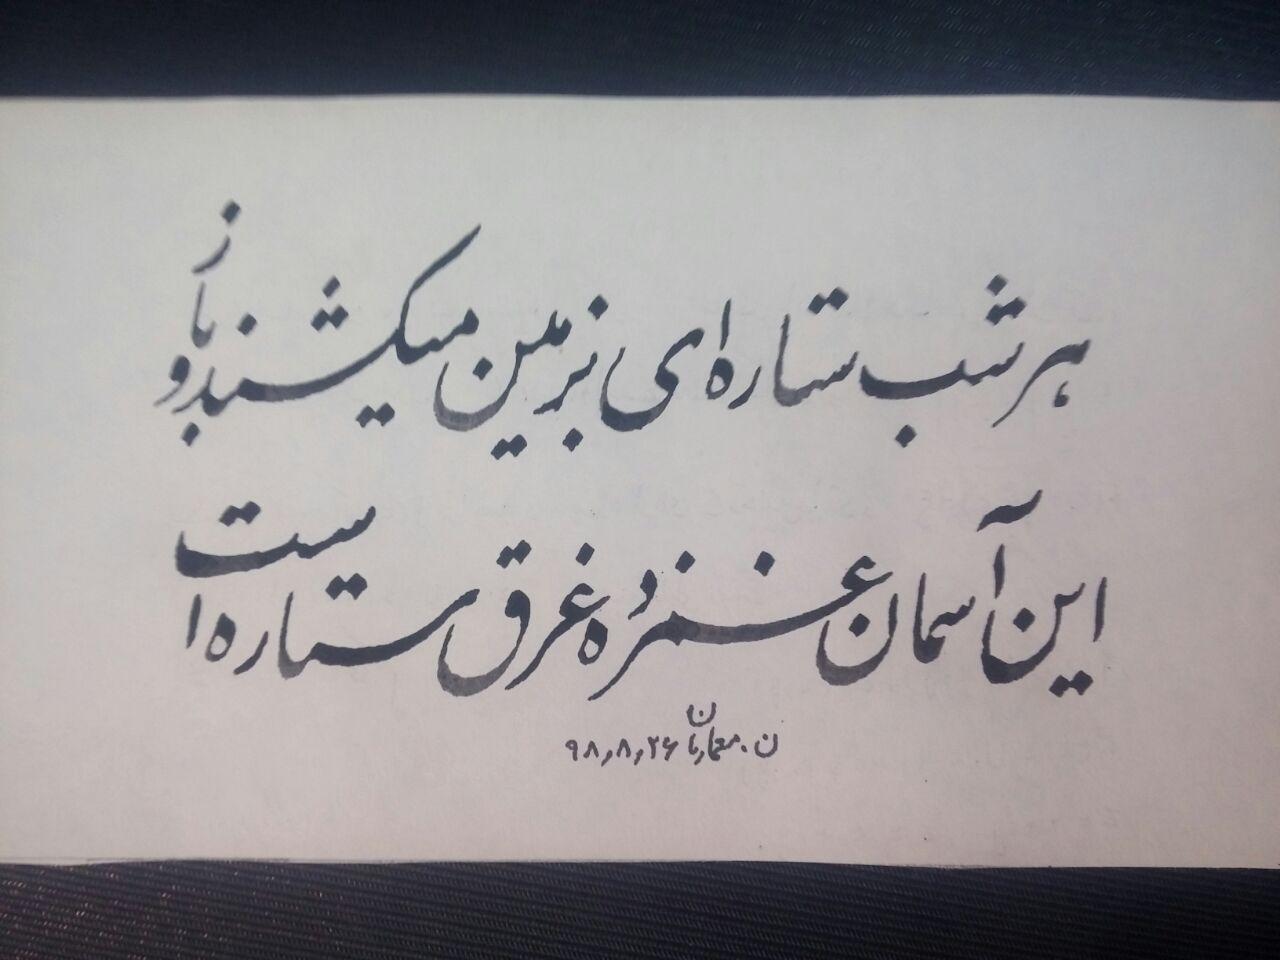 هر شب ستاره ای بزمین میکشند و باز
این آسمان غمزده غرق ستاره است
ن. معماریان ۹۸٫۸٫۲۶